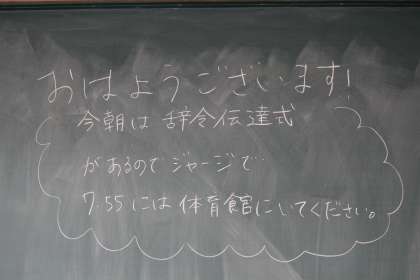 おはようございます!
今朝は 辞令伝達式
があるので ジャージで
7.55には体育館にいてください。